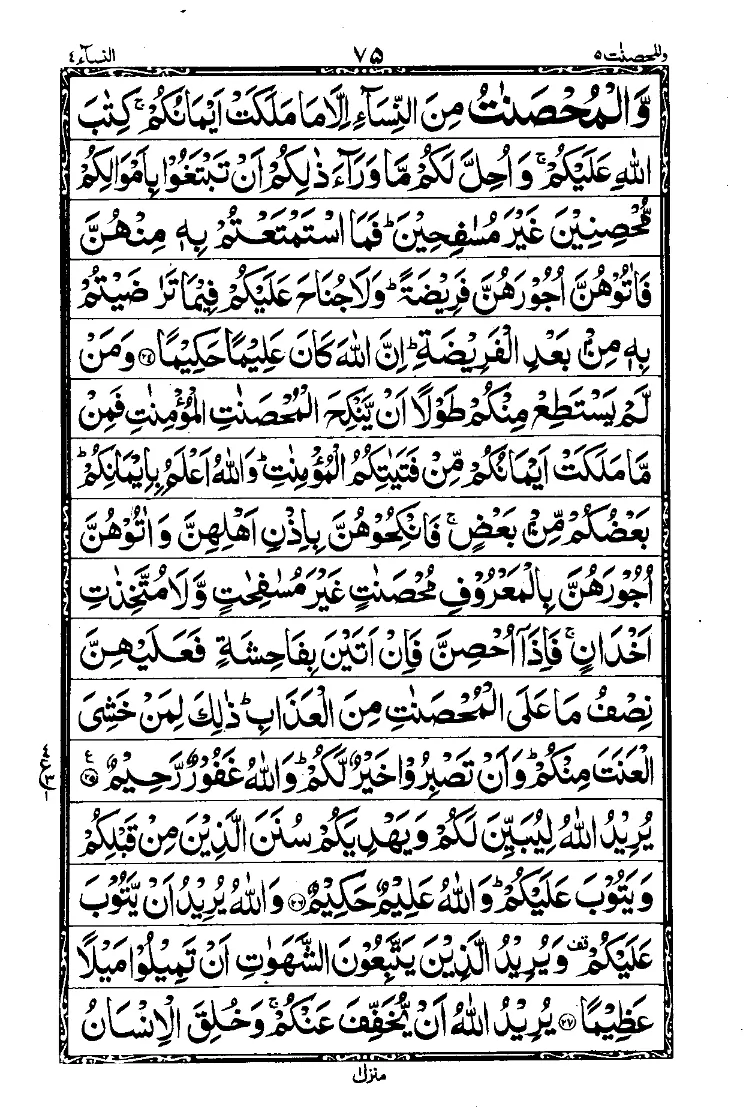 والمحصنت ۵ ۷۵ النسآء ۴
وَّالْمُحْصَنٰتُ مِنَ النِّسَآءِ اِلَّا مَا مَلَكَتْ اَيْمَانُكُمْ ۚ كِتٰبَ
اللّٰهِ عَلَيْكُمْ ۚ وَاُحِلَّ لَكُمْ مَّا وَرَآءَ ذٰلِكُمْ اَنْ تَبْتَغُوْا بِاَمْوَالِكُمْ
مُّحْصِنِيْنَ غَيْرَ مُسٰفِحِيْنَ ؕ فَمَا اسْتَمْتَعْتُمْ بِهٖ مِنْهُنَّ
فَاٰتُوْهُنَّ اُجُوْرَهُنَّ فَرِيْضَةً ؕ وَلَا جُنَاحَ عَلَيْكُمْ فِيْمَا تَرٰضَيْتُمْ
بِهٖ مِنْۢ بَعْدِ الْفَرِيْضَةِ ؕ اِنَّ اللّٰهَ كَانَ عَلِيْمًا حَكِيْمًا ﴿۲۴﴾ وَمَنْ
لَّمْ يَسْتَطِعْ مِنْكُمْ طَوْلًا اَنْ يَّنْكِحَ الْمُحْصَنٰتِ الْمُؤْمِنٰتِ فَمِنْ
مَّا مَلَكَتْ اَيْمَانُكُمْ مِّنْ فَتَيٰتِكُمُ الْمُؤْمِنٰتِ ؕ وَاللّٰهُ اَعْلَمُ بِاِيْمَانِكُمْ ؕ
بَعْضُكُمْ مِّنْۢ بَعْضٍ ۚ فَانْكِحُوْهُنَّ بِاِذْنِ اَهْلِهِنَّ وَاٰتُوْهُنَّ
اُجُوْرَهُنَّ بِالْمَعْرُوْفِ مُحْصَنٰتٍ غَيْرَ مُسٰفِحٰتٍ وَّلَا مُتَّخِذٰتِ
اَخْدَانٍ ۚ فَاِذَاۤ اُحْصِنَّ فَاِنْ اَتَيْنَ بِفَاحِشَةٍ فَعَلَيْهِنَّ
نِصْفُ مَا عَلَى الْمُحْصَنٰتِ مِنَ الْعَذَابِ ؕ ذٰلِكَ لِمَنْ خَشِىَ
الْعَنَتَ مِنْكُمْ ؕ وَاَنْ تَصْبِرُوْا خَيْرٌ لَّكُمْ ؕ وَاللّٰهُ غَفُوْرٌ رَّحِيْمٌ ﴿۲۵﴾ ع
يُرِيْدُ اللّٰهُ لِيُبَيِّنَ لَكُمْ وَيَهْدِيَكُمْ سُنَنَ الَّذِيْنَ مِنْ قَبْلِكُمْ
وَيَتُوْبَ عَلَيْكُمْ ؕ وَاللّٰهُ عَلِيْمٌ حَكِيْمٌ ﴿۲۶﴾ وَاللّٰهُ يُرِيْدُ اَنْ يَّتُوْبَ
عَلَيْكُمْ قف وَيُرِيْدُ الَّذِيْنَ يَتَّبِعُوْنَ الشَّهَوٰتِ اَنْ تَمِيْلُوْا مَيْلًا
عَظِيْمًا ﴿۲۷﴾ يُرِيْدُ اللّٰهُ اَنْ يُّخَفِّفَ عَنْكُمْ ۚ وَخُلِقَ الْاِنْسَانُ